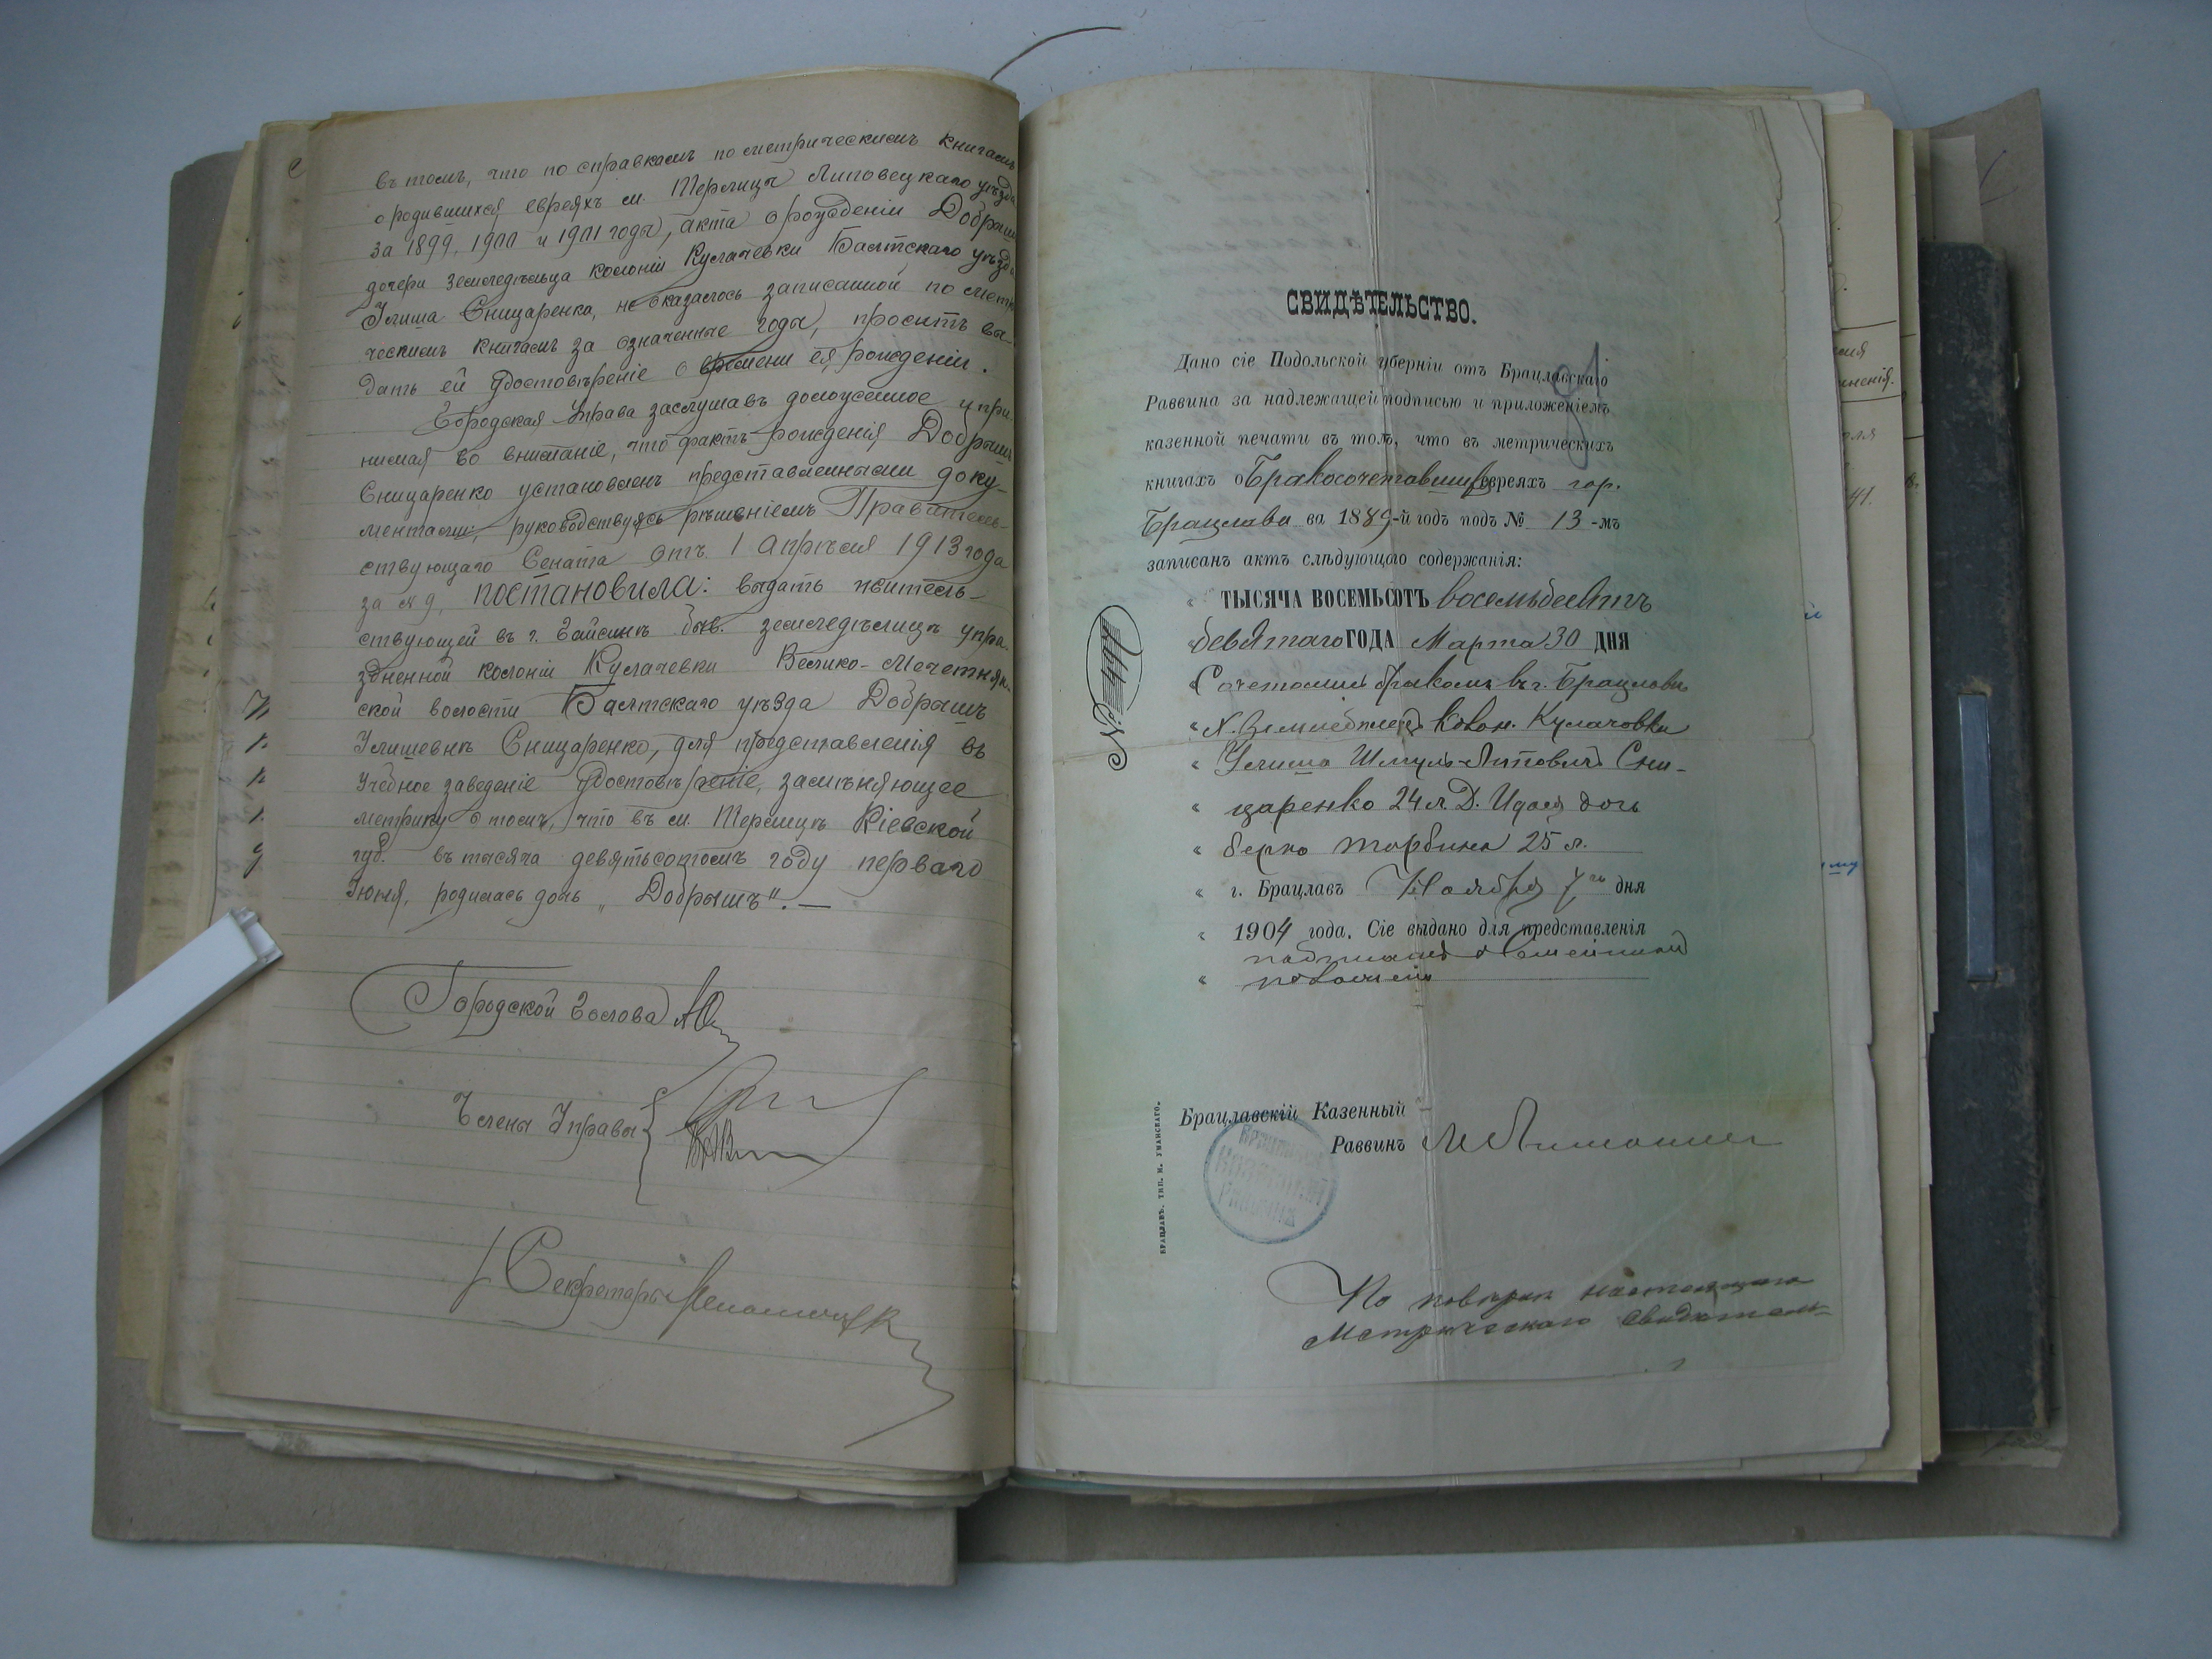 въ томъ, что по справкамъ по метрическимъ книгамъ
о родившихся евреяхъ м. Терлица Липовецкаго уѣзда
за 1899, 1900 и 1901 годы, акта о рожденіи Добрышъ
дочери земледѣльца колоніи Кулачевки Балтскаго уѣзда
Улиша Сницаренка, не оказалось записанной по метри
ческимъ книгамъ за означенные годы, проситъ вы-
дать ей удостовѣреніе о времени ея рожденіи.
Городская Управа заслушавъ доложенное и при
нимая во вниманіе, что фактъ рожденія Добрышъ
Сницаренко установленъ представленными доку-
ментами, руководствуясь рѣшеніемъ Правитель-
ствующаго Сената отъ 1 Апрѣля 1913 года
за № 9, постановила: выдать жительствующей
ствующей въ г. Гайсинѣ быв. земледѣлицѣ упра-
здненной колоніи Кулачевки Велико-Мечетнян-
ской волости Балтскаго уѣзда Добрышъ
Улишевнѣ Сницаренко, для представленія въ
учебное заведеніе удостовѣреніе, замѣняющее
метрику о томъ, что въ м. Терлицѣ Кіевской
губ. въ тысяча девятьсотомъ году перваго
Іюня, родилась дочь „Добрышъ". —
Городской Голова
Члены Управы
Секретарь
СВИДѢТЕЛЬСТВО.
91
Дано сіе Подольской губерніи отъ Брацлавскаго
Раввина за надлежащей подписью и приложеніемъ
казенной печати въ томъ, что въ метрическихъ
книгахъ о Бракосочетавших евреяхъ гор.
Брацлава за 1889-й годъ подъ № 13-мъ
записанъ актъ слѣдующаго содержанія:
„ ТЫСЯЧА ВОСЕМЬСОТЪ восемьдесятъ
„ девятаго ГОДА Марта 30 ДНЯ
„ Сочетались бракомъ въ г. Брацлавѣ
„ Х. Земледѣлецъ колон. Кулачовки
„ Улиша Шмуль-Лейбовичъ Сни-
„ царенко 24 л. Д. Идася дочь
„ Берко Торбина 25 л.
„ г. Брацлавъ Ноября 7го дня
„ 1904 года. Сіе выдано для представленія
№ 444
Брацлавскій Казенный
Раввинъ
БРАЦЛАВЪ. ТИП. И. УМАНСКАГО.
КАЗЕННЫЙ
РАВВИНЪ
По повѣркѣ настоящаго
Метрическаго свидѣтель-